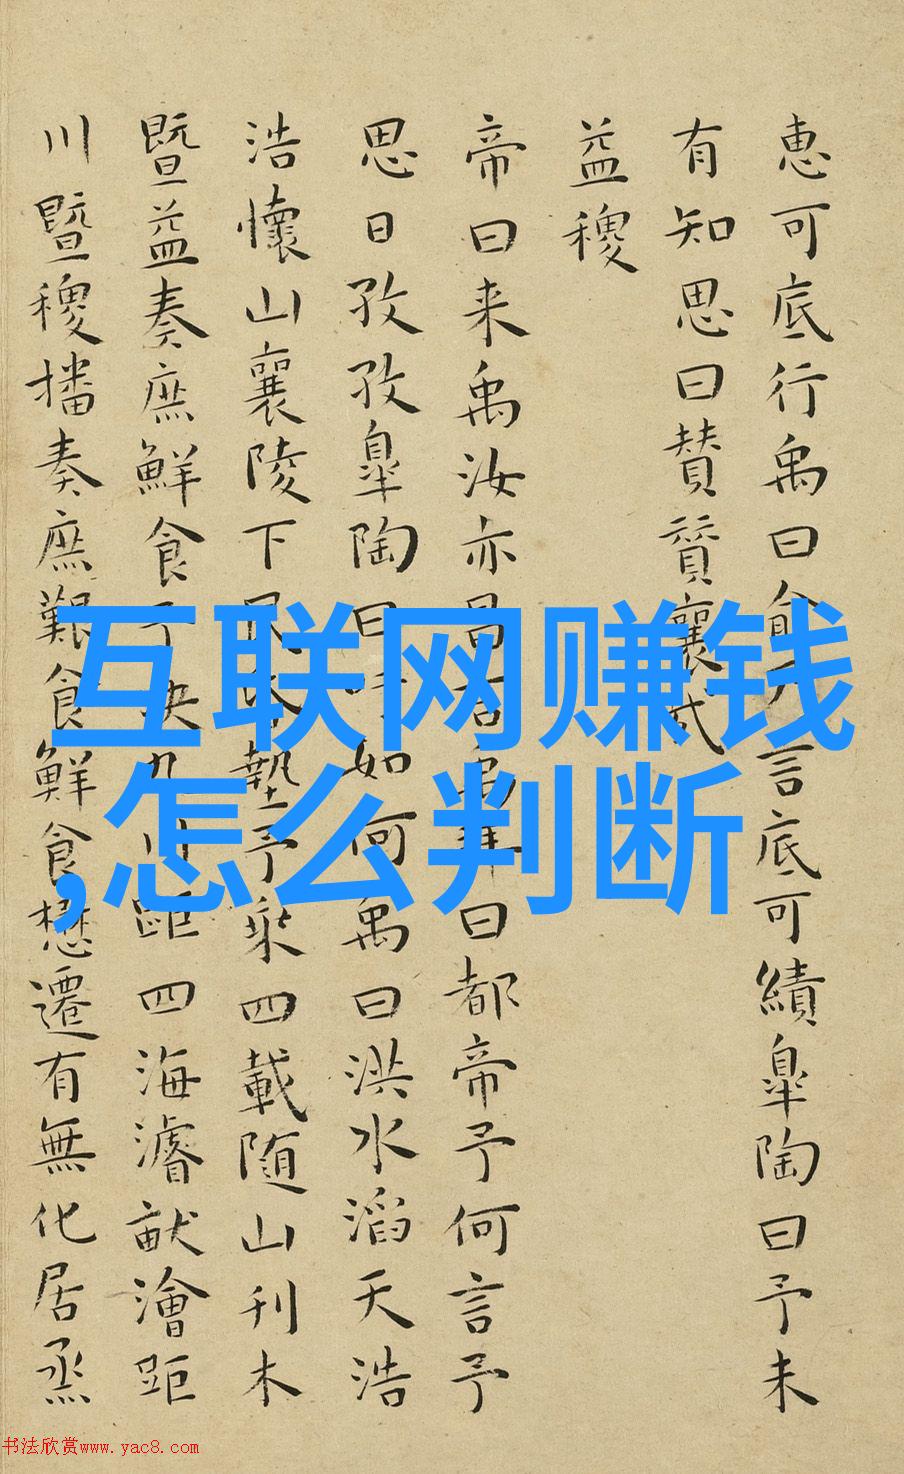 恵可底行禹曰俞乃言底可績皐陶曰予未
有知思曰賛賛襄哉
益稷
帝曰来禹汝亦昌言禹拜曰都帝予何言予
思日孜孜皐陶曰吁如何禹曰洪水滔天浩
浩懷山襄陵下民昏墊予乘四載随山刊木
暨益奏庶鮮食予決九川距四海濬畎澮距
川暨稷播奏庶艱食鮮食懋遷有無化居烝
互联网赚钱
,怎么判断
书法欣赏www.yac8.com